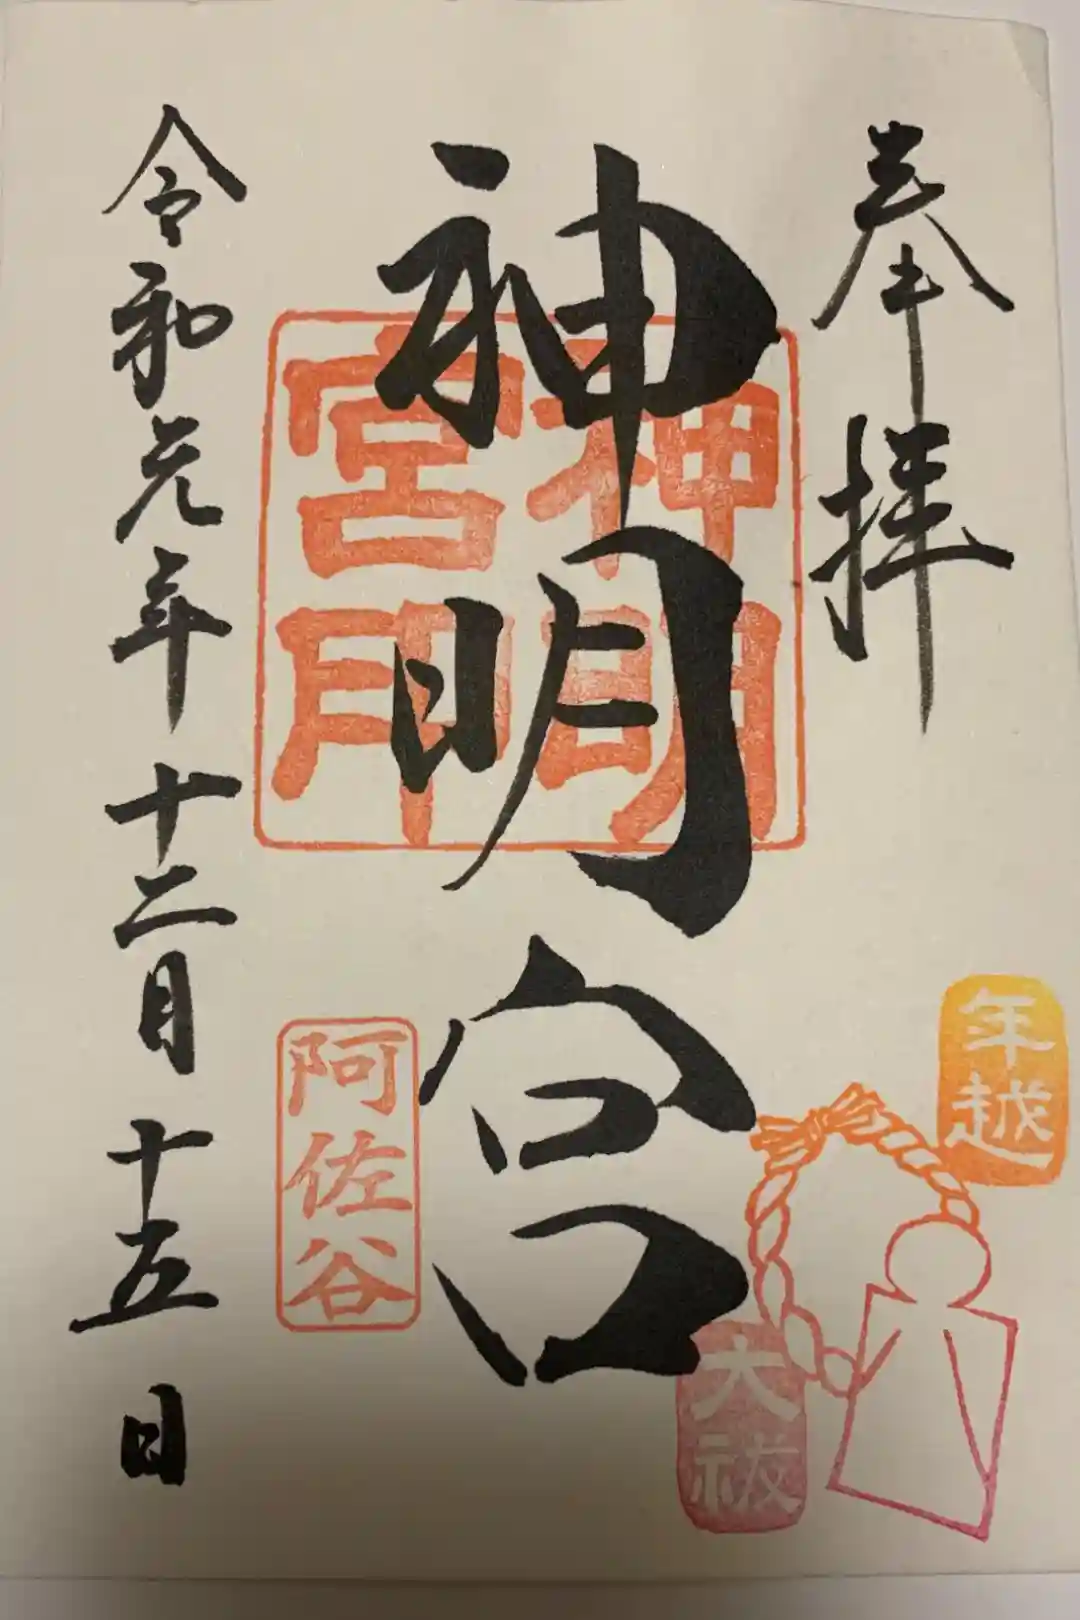 奉拝
年越
大祓
神明宮
神明
宮印
阿佐谷
令和元年十二月十五日